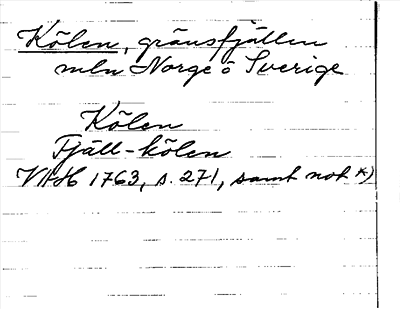 Kölen, gränsfjällen
mln Norge o Sverige
Kölen
Fjäll-kölen
VAH 1763, s. 271, samt not *)